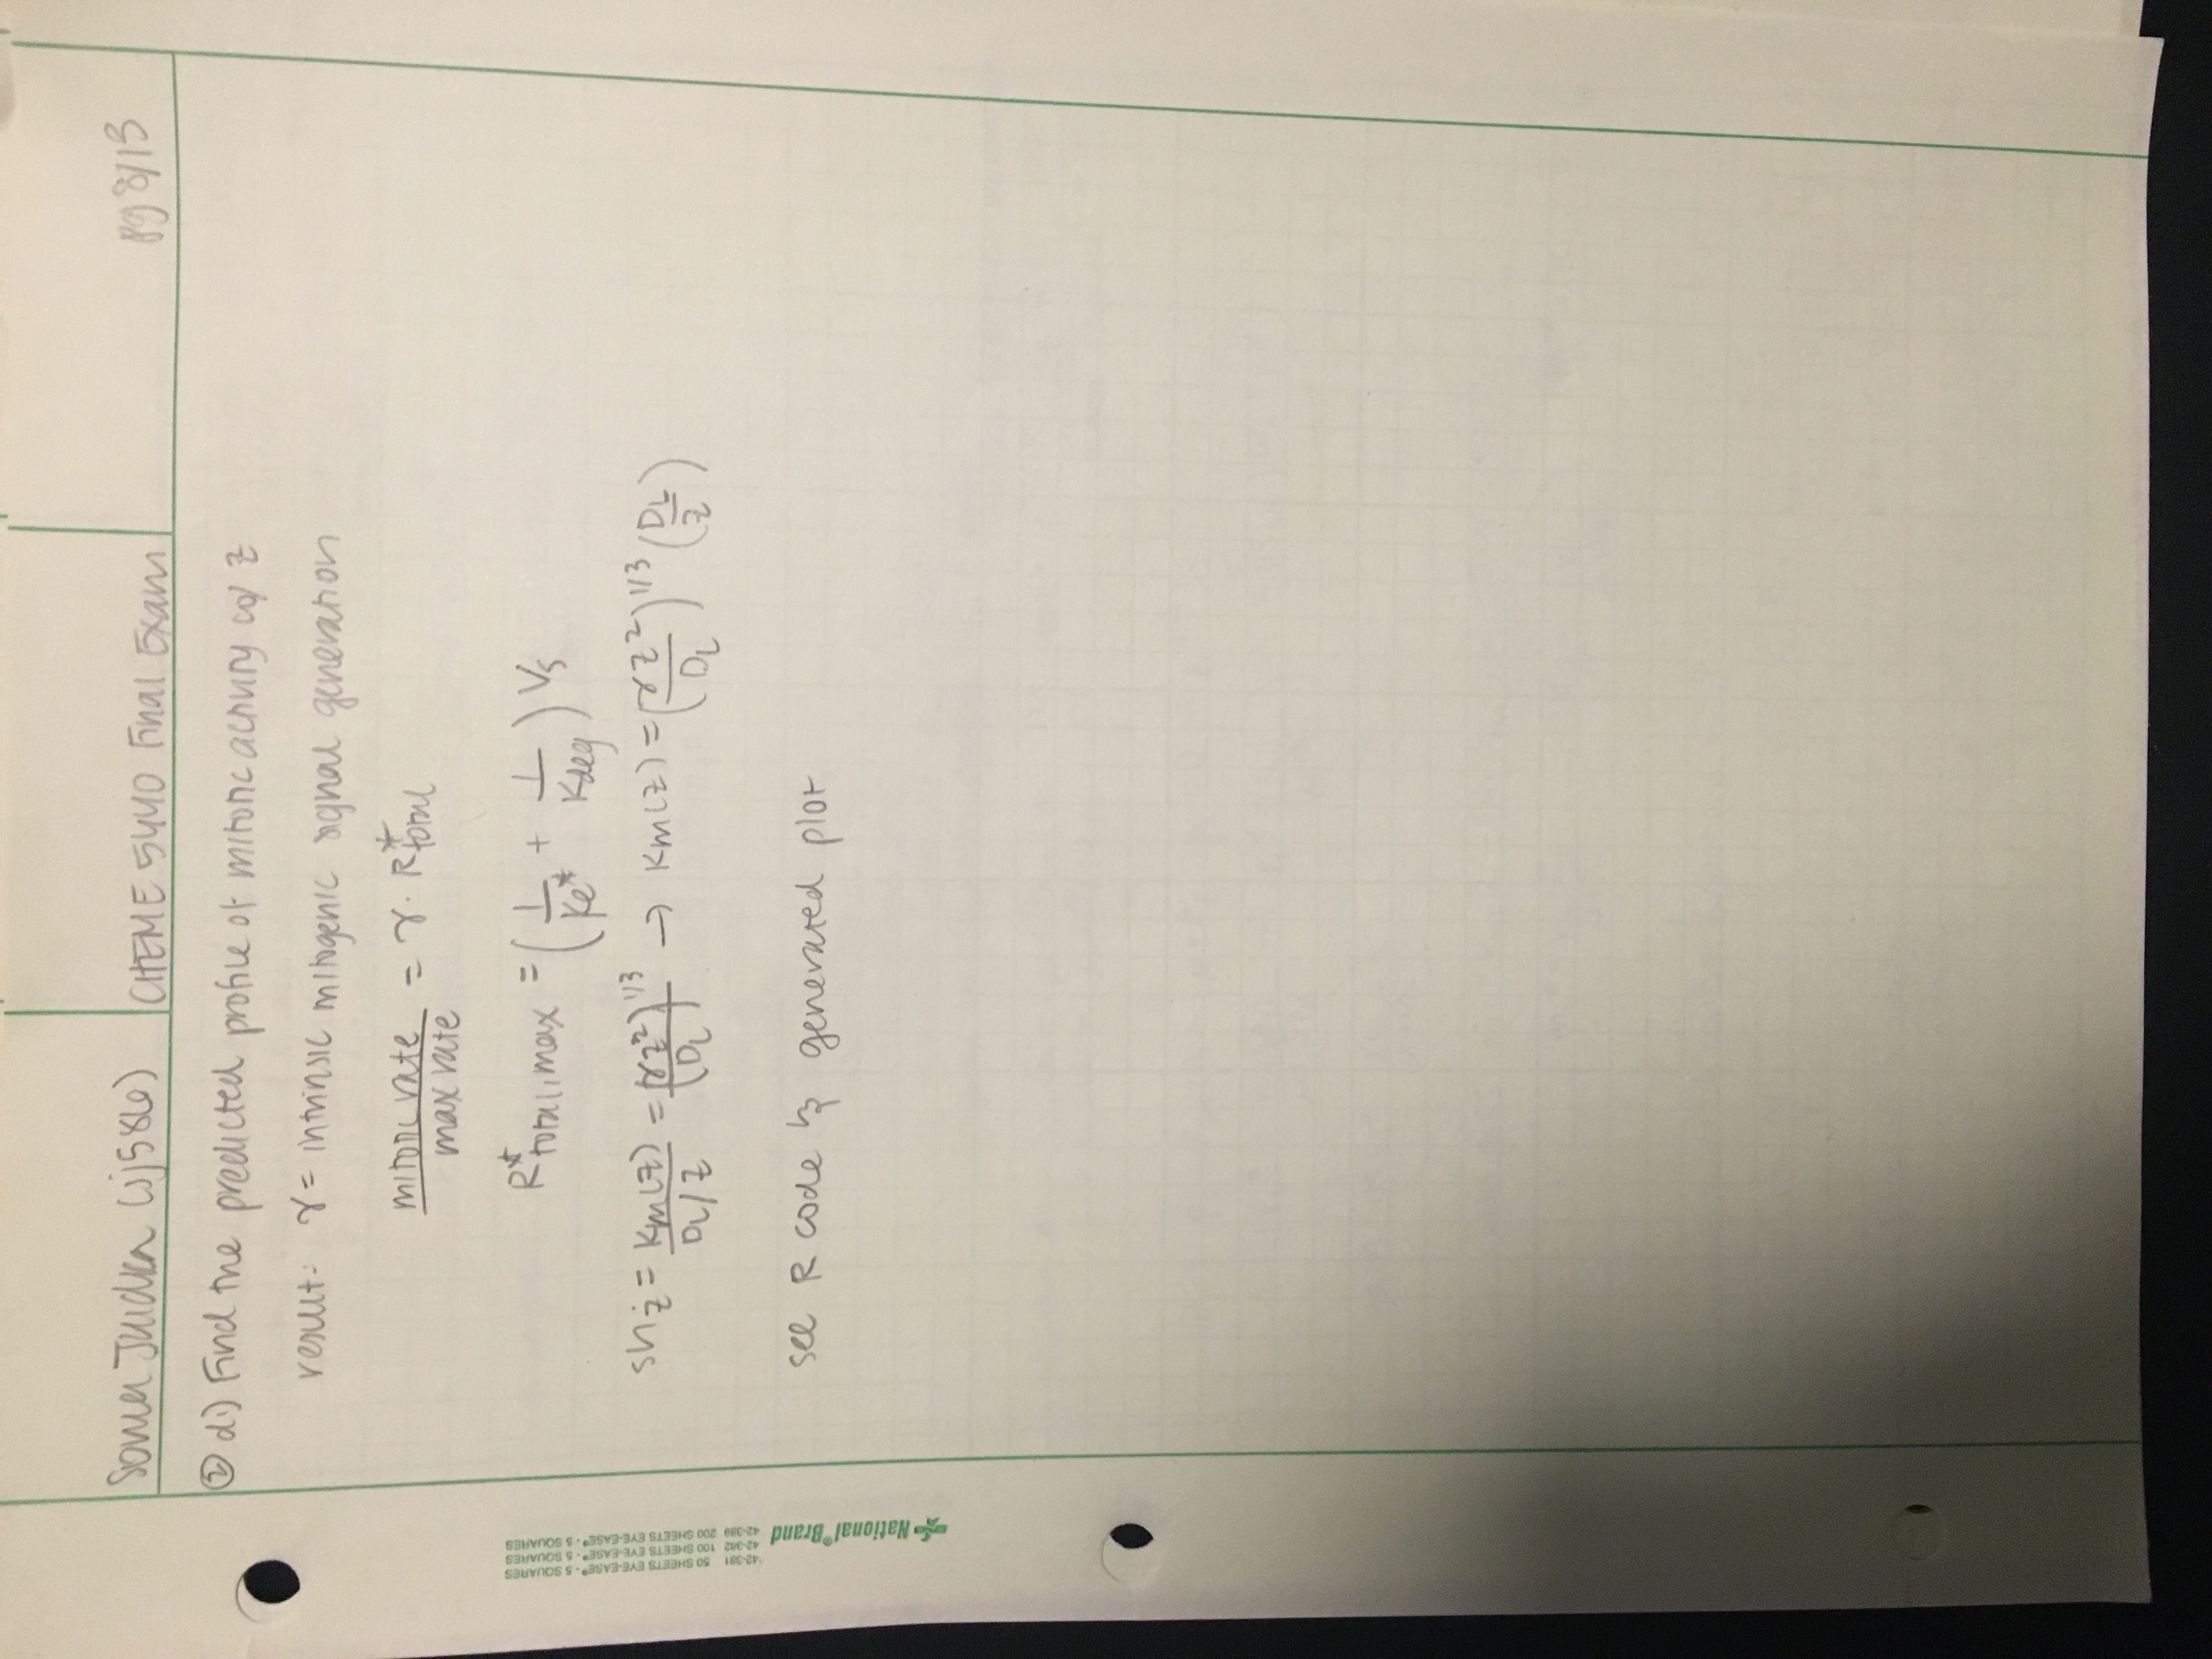 (sj586)
CHEME 5440 Final Exam
pg 8/13
② di) Find the predicted profile of mitotic activity w/ z
result: γ = intrinsic mitogenic signal generation
mitotic rate / max rate = γ · R*total
R*total,max = (1/Ke* + 1/Kdeg) Vs
shz = Km(z) / DL/z = (γz²/DL)^1/3 → Km(z) = (γz²/DL)^1/3 (DL/z)
see R code & generated plot
42-381 50 SHEETS EYE-EASE® - 5 SQUARES
42-382 100 SHEETS EYE-EASE® - 5 SQUARES
42-389 200 SHEETS EYE-EASE® - 5 SQUARES
National® Brand